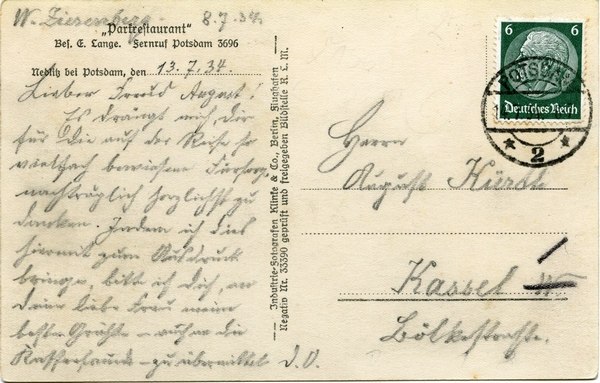 W. Ziesenberg - 8.7.34.
„Parkrestaurant"
Bes. E. Lange. Fernruf Potsdam 3696
Nedlitz bei Potsdam, den 13.7.34.
Lieber Freund August!
Es drängt mich, Dir
für Die auf der Reise so
vielfach bewiesene Fürsorge
nachträglich herzlichst zu
danken. Indem ich dies
hiermit zum Ausdruck
bringe, bitte ich Dich, an
Deine liebe Frau meine
besten Grüße - auch an die
zu übermitteln D.O.
Industrie-Fotografen Klinke & Co., Berlin, Flughafen
Negativ Nr. 33390 geprüft und freigegeben Bildstelle R. L. M.
6 6
Deutsches Reich
POTSDAM
* 2 *
Herrn
August
Kassel - W
Bölkestraße.